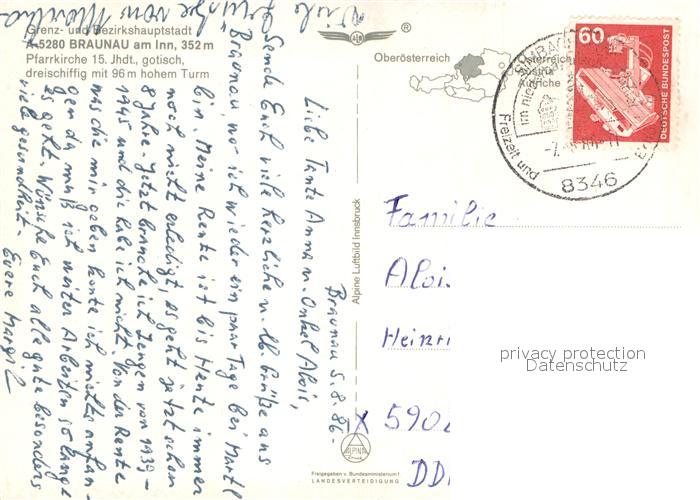 Grenz- und Bezirkshauptstadt
A-5280 BRAUNAU am Inn, 352 m
Pfarrkirche 15. Jhdt., gotisch,
dreischiffig mit 96 m hohem Turm
Oberösterreich
Österreich
Austria
Autriche
60
DEUTSCHE BUNDESPOST
im nieder
Freizeit und
8346
Braunau 5.8.86.
Liebe Tante Anna u. Onkel Alois,
Sende Euch viele herzliche u. lb. Grüße aus
Braunau, wo ich wieder ein paar Tage bei Martl
bin. Meine Rente ist bis Heute immer
noch nicht erledigt, es geht jetzt schon
8 Jahre. Jetzt brauche ich Zeugen von 1939 –
1945 und die habe ich nicht. Von der Rente
was die mir geben konte ich nichts anfan-
gen da muß ich weiter Arbeiten so lange
es geht. Wünsche Euch alles gute besonders
viel gesundheit.
Euere Margit
Viele
Grüße von
Alpine Luftbild Innsbruck
Familie
Alois
Heinri
IX 5902
DD
ALPINE
Freigegeben v. Bundesministerium f.
LANDESVERTEIDIGUNG
privacy protection
Datenschutz